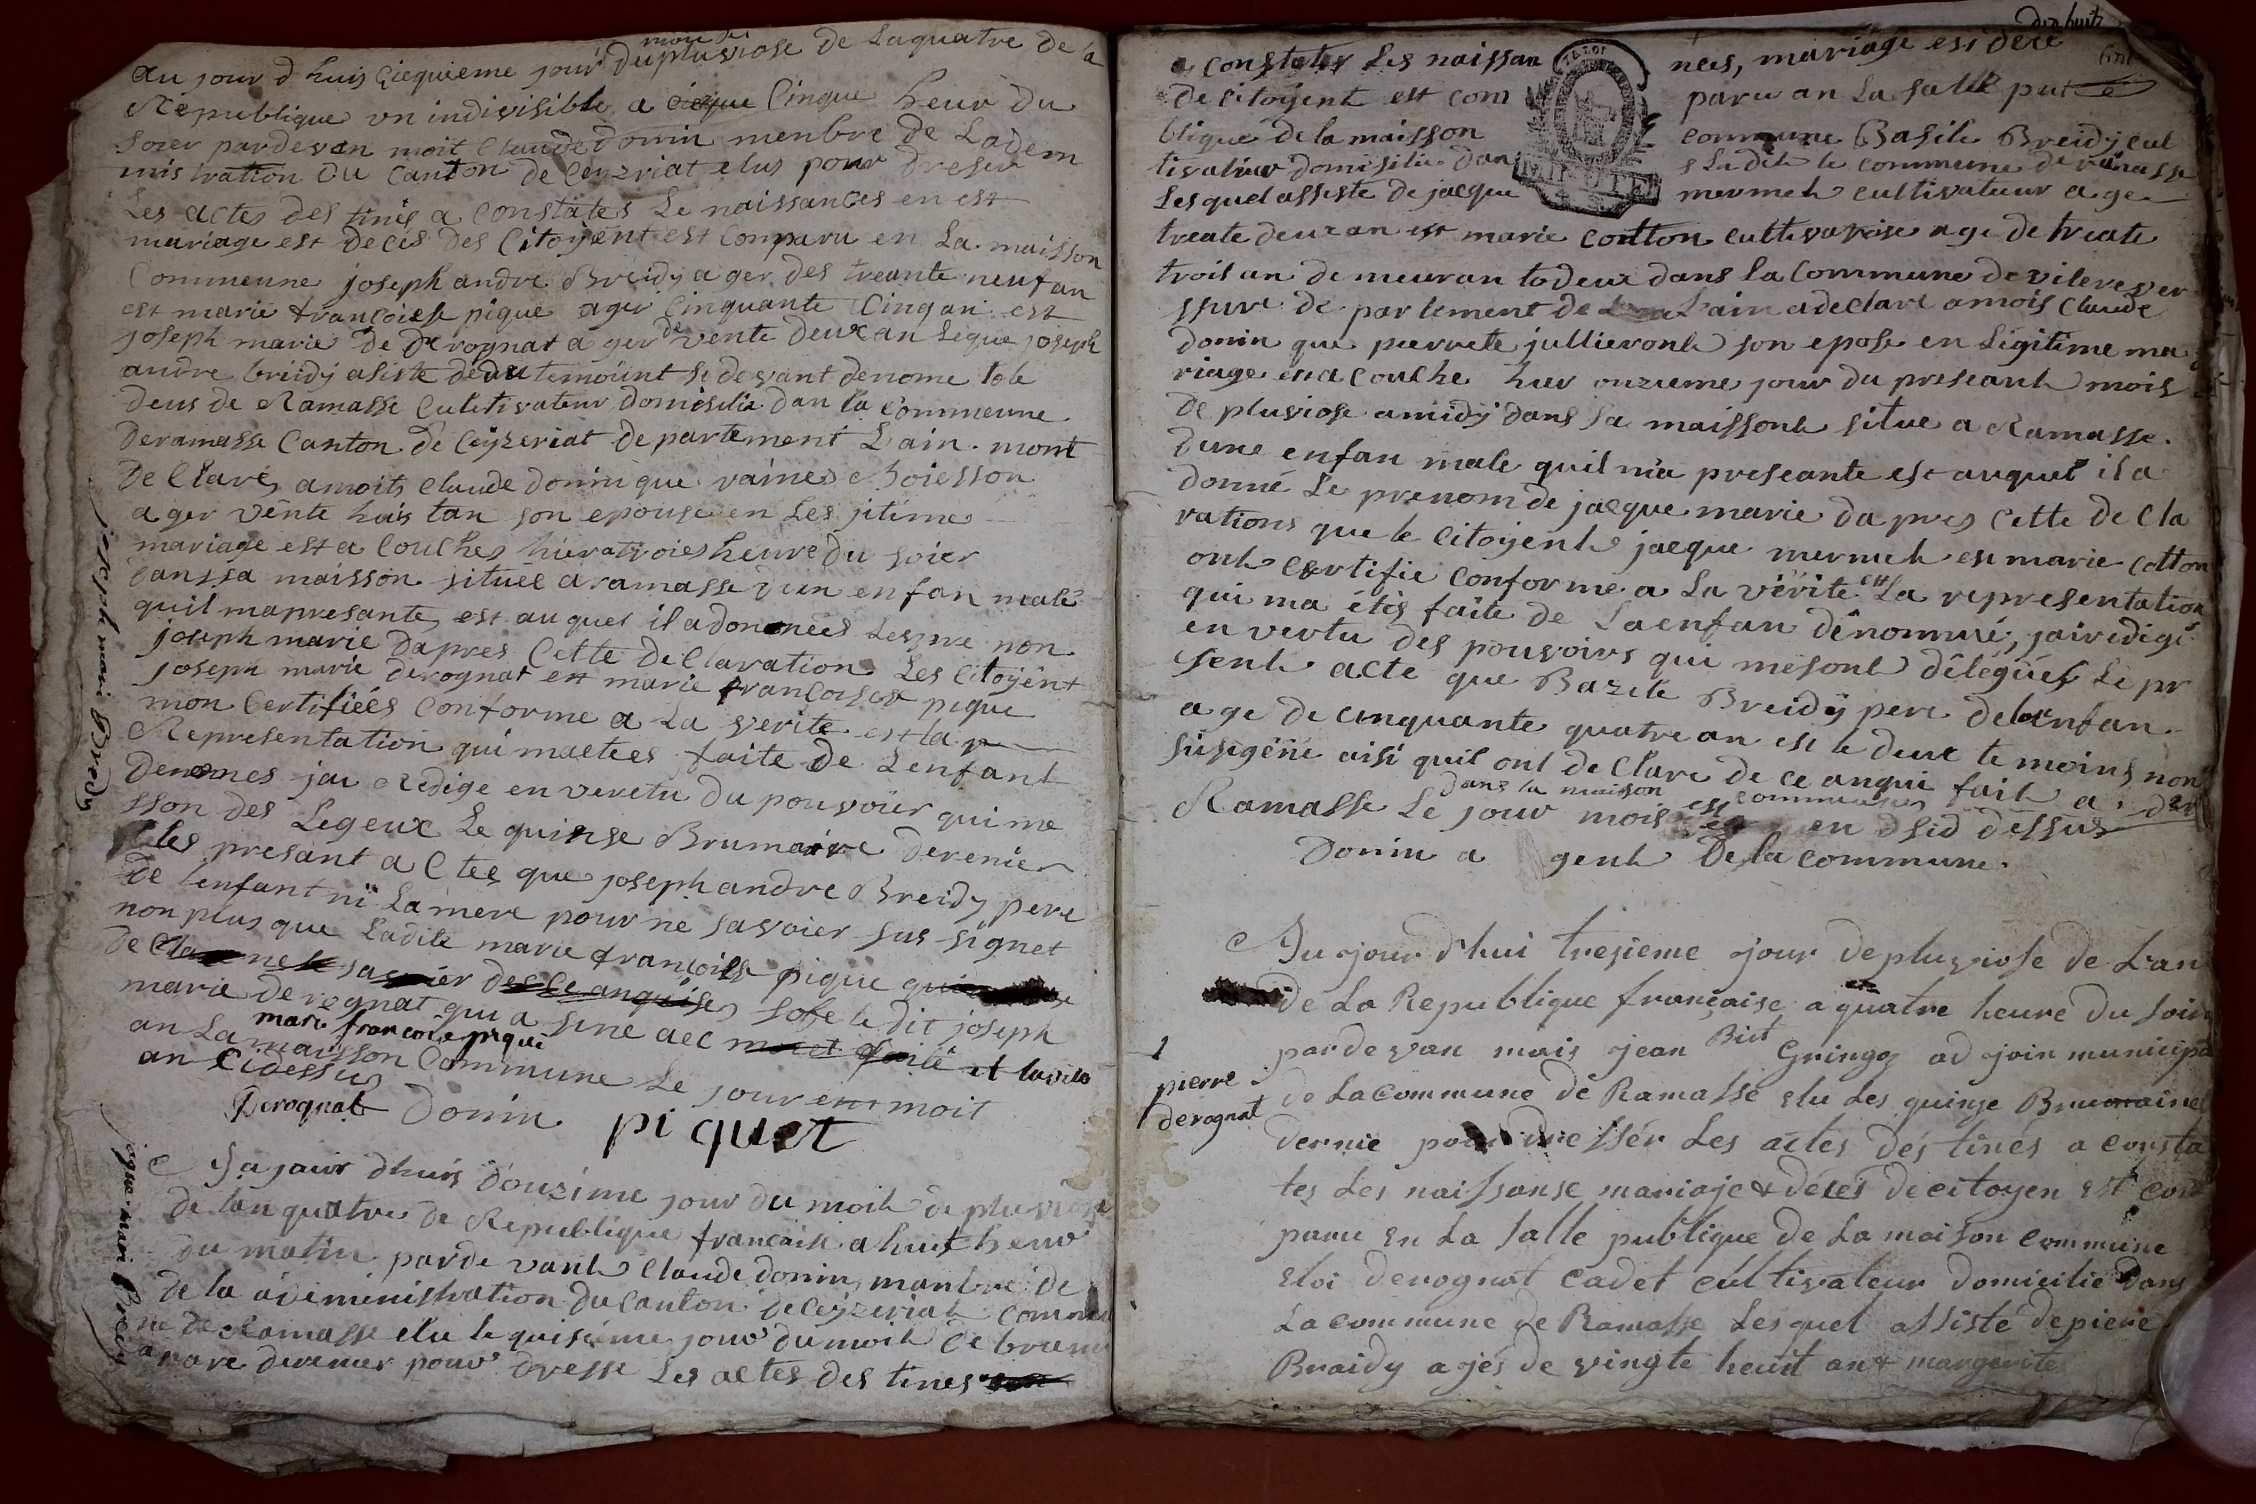 au jour d huis ciequieme jour du mois de pluviose de Laquatre de la
Republique un indivisible a cieque Cinque heur du
soier pardevan moit Claude donin menbre de Ladem
mistration du Canton de Ceyzriat elus pour dreser
Les actes des tinés a Constates Le naissances en est
mariage est deces des Citoyent est Comparu en La maisson
Commeune joseph andre Breidy a ger des treante neuf an
est marie francoiese pique ager Cinquante Cinq an est
joseph marie De Derognat a ger de vente deux an Leque joseph
andre breidy asiste de deu temoiint si devant denome tole
deus de Ramasse Culetivateur domisilie dan la Commeune
deramasse Canton de Ceyzeriat departement L'ain mont
de Clarés a moits Claude donin que raimes Choiesson
ager vente huis tan son epouse en Les jitime
mariage est a Couches hier a troies heure du soier
dans sa maisson située a ramasse d'un enfan male
quil mapresante est auques il a données Les pre non
joseph marie Dapres Cette de Claration Les Citoyent
joseph marie derognat est marie francoises pique
mon Certifiées Conforme a La verite est la
Representation qui maetees faite de L'enfant
denomes jai Redige en veretu du pouvoier qui me
sson des Legeux Le quinse Brumaire derenier
les presant a Ctee que joseph andre Breidy pere
de lenfant ni La mere pour ne savoier sus signet
non plus que Ladite marie francoise pique
de Cla ne le savoier des Ce anquises sofe le dit joseph
marie derognat qui a sine aec moiet faite et lavile
mari francoise piqui
an La maisson Commune Le jour en moit
an Cidessus
Derognat Donin piquet
joseph mari Bredy
Au jour dhuis douzime jour du moit de pluviose
de lan quatre de Republique francaise a huit heur
du matin par de vant Claude donin manbre de
de la adeministration du Canton de Ceyzeriat Commu
ne de Ramasse elu le quisieme jour du moit de brum
are derenier pour dresse Les actes des tines
jaque mari Bredy
dix huit
a constater Les naissan nees, mariage est dece
de citoyent est com paru an La salle pu
blique de la maisson commune Basile Breidy cul
tivatiur domisilie dan s La dite le commune de ramasse
Lesquel assiste de jacque mermet cultivateur age
treate deux an est marie cotton cultivatrise age de treate
trois an de meuran todeux dans la Commune de vilerever
ssure de partement de L'ain a declare a mois Claude
donin que pierrete jullieront son epose en Légitime ma
riage en a couche hier onzieme jour du preseant mois
de pluviose a midy dans sa maissont situe a Ramasse
dune enfan male quil m'a preseante est auquel il a
donné Le prenom de jacque marie dapres cette de cla
rations que le Citoyent jacque mermet est marie cotton
ont certifie conforme a La vérité est La representation
qui ma étés faite de Laenfan dénommé, jai redigé
en vertu des pouvoirs qui mesont délégués Le pr
sent acte que Bazile Breidy pere de lenfan
age de cinquante quatre an est le deux te moins non
sinsigéne aisi quil ont declare de ce anqui fait a
dans la maison commune
Ramasse Le jour mois est en dsid dessus
Donin a gent de la commune.
Au jour d'hui tresieme jour de pluviose de L'an
de La Republique française a quatre heure du soir
pardevan mais jean Bist Gringoz ad join municipa
de La Commune de Ramasse elu Les quinze Brumaire
1
pierre
derognat
dernie pour dressér Les actes destinés a consta
tes Les naissanse mariaje & déses de citoyen est com
paru en La salle publique de La maison commune
eloi derognat cadet cultivateur domicilie dans
La commune de Ramasse Lesquel assiste de piere
Braidy ajés de vingte heuit an & margerite